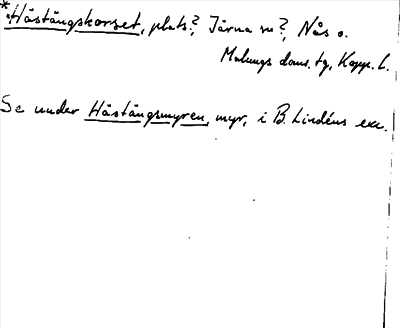 *Håstängskorset, plats?, Järna sn?, Nås o.
Malungs doms. tg, Kopp. l.
Se under Håstängsmyren, myr, i B. Lindéns exc.